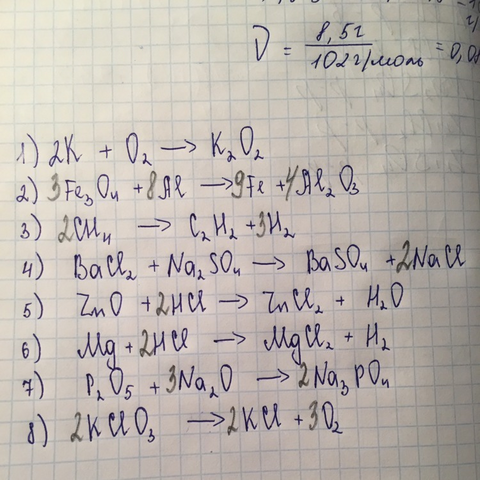 ν = 8,5г / 102г/моль = 0,0
1) 2K + O₂ → K₂O₂
2) 3Fe₃O₄ + 8Al → 9Fe + 4Al₂O₃
3) 2CH₄ → C₂H₂ + 3H₂
4) BaCl₂ + Na₂SO₄ → BaSO₄ + 2NaCl
5) ZnO + 2HCl → ZnCl₂ + H₂O
6) Mg + 2HCl → MgCl₂ + H₂
7) P₂O₅ + 3Na₂O → 2Na₃PO₄
8) 2KClO₃ → 2KCl + 3O₂